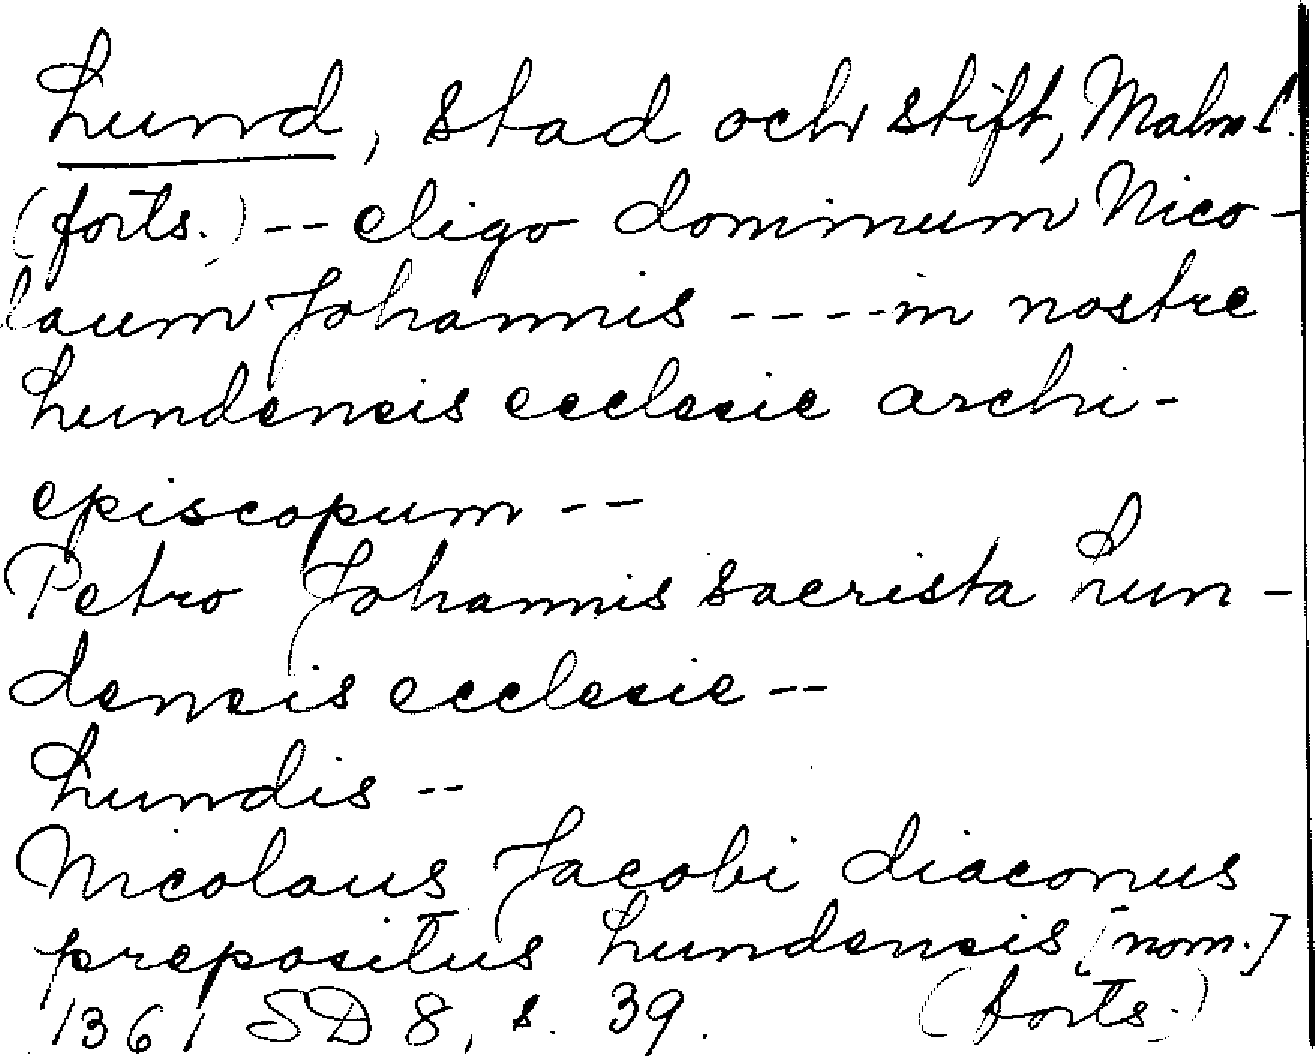 Lund, stad och stift, Malm l.
(forts.) -- eligo dominum Nico-
laum Johannis ---- in nostre
Lundensis ecclesie archi-
episcopum --
Petro Johannis sacrista Lun-
densis ecclesie --
Lundis --
Nicolaus Jacobi diaconus
prepositus Lundensis [nom.]
1361 SD 8, s. 39. (forts.)